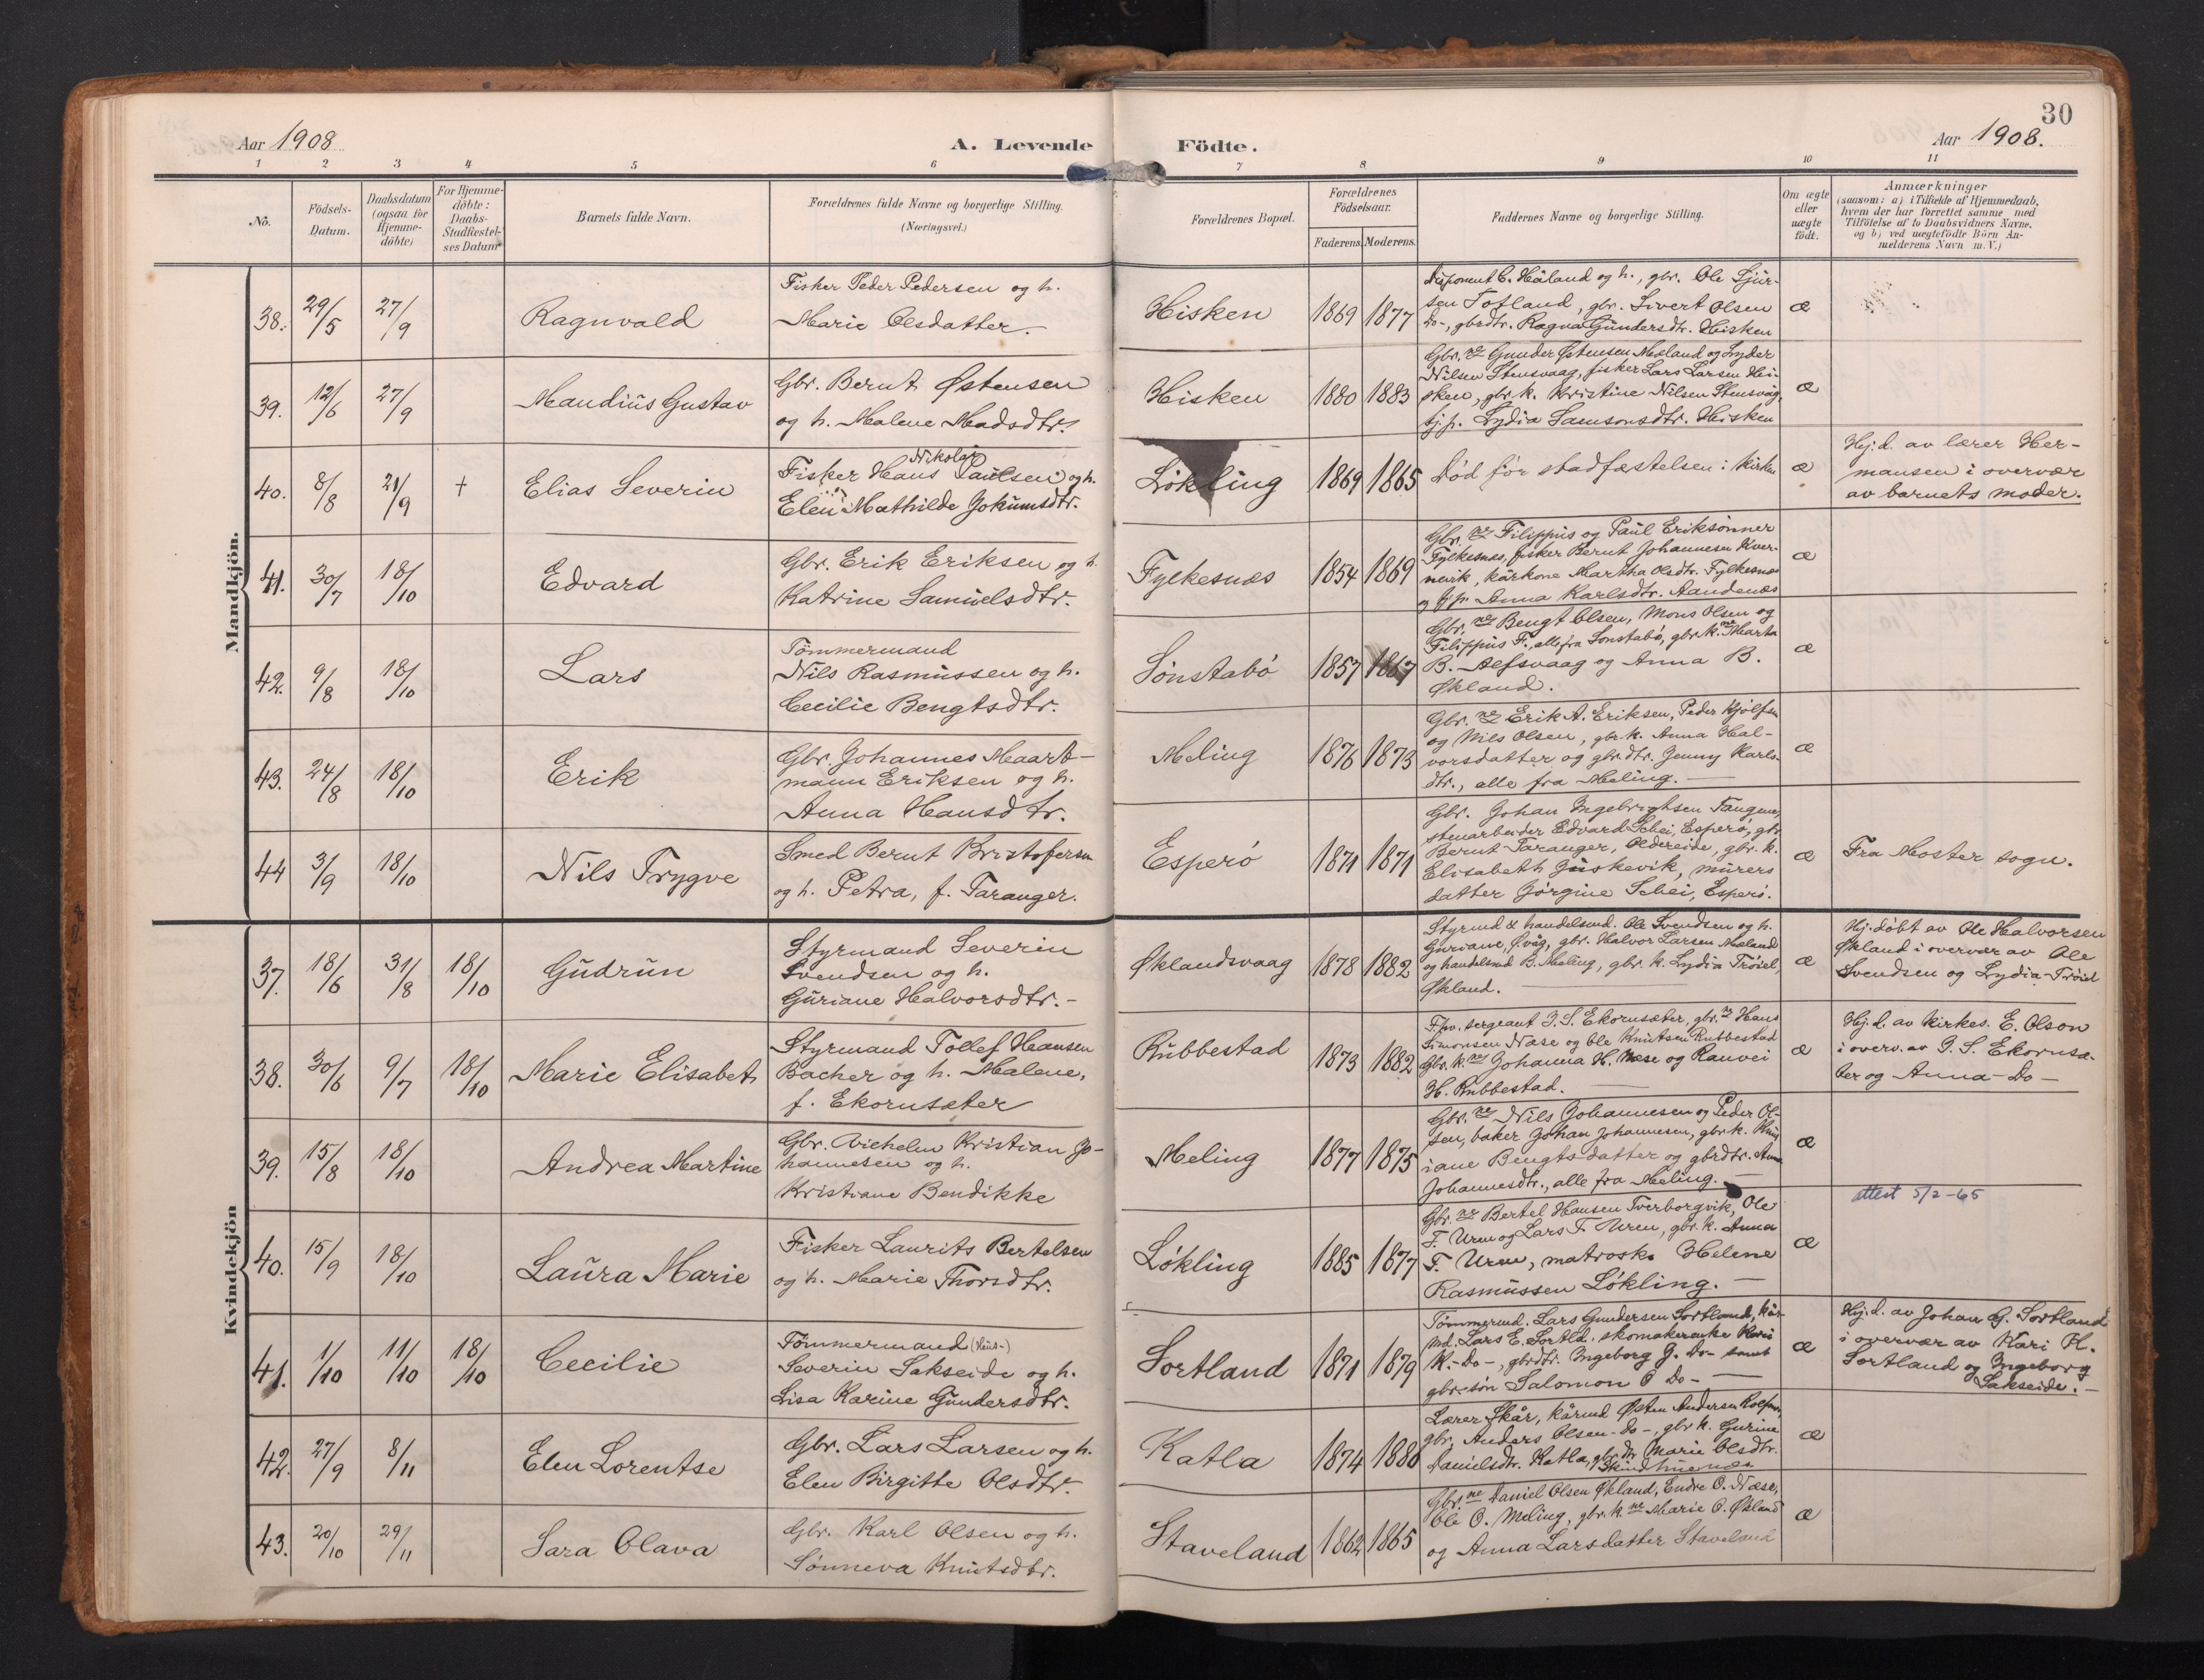 30
Aar 1908
A. Levende
Födte.
Aar 1908.
1 2 3 4 5 6 7 8 9 10 11
No.
Födsels-
Datum.
Daabsdatum
(ogsaa for
Hjemme-
döbte)
For Hjemme-
döbte:
Daabs-
Stadfæstel-
ses Datum
Barnets fulde Navn.
Forældrenes fulde Navne og borgerlige Stilling.
(Næringsvei.)
Forældrenes Bopæl.
Forældrenes
Födselsaar.
Faderens. Moderens.
Faddernes Navne og borgerlige Stilling.
Om ægte
eller
uægte
födt.
Anmærkninger
(saasom: a) i Tilfælde af Hjemmedaab,
hvem der har forrettet samme med
Tilföielse af to Daabsvidners Navne,
og b) ved uægtefödte Börn An-
melderens Navn m. V.)
Mandkjön.
38. 29/5 27/9
Ragnvald
Fisker Peder Pedersen og h.
Marie Olsdatter.
Hisken
1869 1877
Disponent C. Håland og h., gbr. Ole Sjur-
sen Totland, gbr. Sivert Olsen
Do-, gbrdtr. Ragna Gundersdtr. Hisken
æ
39. 12/6 27/9
Mandius Gustav
Gbr. Bernt Østensen
og h. Malene Madsdtr.
Hisken
1880 1883
Gbr.ne Gunder Østensen Mæland og Lyder
Nilsen Stensvaag, fisker Lars Larsen Hi-
sken, gbr. k. Kristine Nilsen Stensvåg,
tj.p. Lydia Samsonsdtr. Hisken
æ
40. 8/8 21/9 +
Elias Severin
Nikolai
Fisker Hans Paulsen og h.
Elen Mathilde Jokumsdtr.
Løkling
1869 1865
Død før stadfæstelsen i kirken
æ
Hj.d. av lærer Her-
mansen i overvær
av barnets moder.
41. 30/7 18/10
Edvard
Gbr. Erik Eriksen og h.
Katrine Samuelsdtr.
Fylkesnæs
1854 1869
Gbr.ne Filippus og Paul Eriksønner
Fylkesnæs, fisker Bernt Johannesen Kver-
nevik, kårkone Martha Olsdtr. Fylkesnæs
og tj.p. Anna Karlsdtr. Aandenæs
æ
42. 9/8 18/10
Lars
Tømmermand
Nils Rasmussen og h.
Cecilie Bengtsdtr.
Sønstabø
1857 1867
Gbr.ne Bengt Olsen, Mons Olsen og
Filippus F., alle fra Sønstabø, gbr. k.ne Marta
B. Alfsvaag og Anna B.
Økland.
æ
43. 24/8 18/10
Erik
Gbr. Johannes Maart-
mann Eriksen og h.
Anna Hansdtr.
Meling
1876 1873
Gbr.ne Erik A. Eriksen, Peder Kjølfsen
og Nils Olsen, gbr. k. Anna Hal-
vorsdatter og gbrdtr. Jenny Karls-
dtr., alle fra Meling.
æ
44 3/9 18/10
Nils Trygve
Smed Bernt Kristofersen
og h. Petra, f. Taranger.
Esperø
1871 1871
Gbr. Johan Ingebrigtsen
stenarbeider Edvard Schei, Esperø, gbr.
Bernt Taranger, Oldereide, gbr. k.
Elisabeth Juskevik, murers
datter Jørgine Schei, Esperø.
æ
Fra Moster sogn.
Kvindekjön
37. 18/6 31/8 18/10
Gudrun
Styrmand Severin
Svendsen og h.
Guriane Halvorsdtr.-
Øklandsvaag
1878 1882
Styrmd & handelsmd. Ole Svendsen og h.
Guriane, Øvåg, gbr. Halvor Larsen Mæland
og handelsmd B. Meling, gbr. k. Lydia Trøiel,
Økland.
æ
Hj.døbt av Ole Halvorsen
Økland i overvær av Ole
Svendsen og Lydia Trøiel
38. 30/6 9/7 18/10
Marie Elisabet
Styrmand Tollef Hansen
Bacher og h. Malene,
f. Ekornsæter
Rubbestad
1873 1882
F.hv. sergeant J. S. Ekornsæter, gbr.ne Hans
Simonsen Næse og Ole Knutsen Rubbestad
Gbr. k.ne Johanna H. Næse og Ranvei
H. Rubbestad.
æ
Hj.d. av kirkes. E. Olson
i overv. av J. S. Ekornsæ-
ter og Anna - Do -
39. 15/8 18/10
Andrea Martine
Gbr. Vilhelm Kristian Jo-
hannesen og h.
Kristiane Bendikke
Meling
1877 1875
Gbr.ne Nils Johannesen og Peder Ol-
sen, baker Johan Johannesen, gbr k. Kris
iane Bengtsdatter og gbrdtr. Anna
Johannesdtr., alle fra Meling.
æ
40. 15/9 18/10
Laura Marie
Fisker Laurits Bertelsen
og h. Marie Thorsdtr.
Løkling
1885 1877
Gbr.ne Bertel Hansen Tverborgvik, Ole
T. Uren og Lars T. Uren, gbr. k. Anna
T. Uren, matrosk. Helene
Rasmussen Løkling.
æ
attest 5/2-65
41. 1/10 11/10 18/10
Cecilie
Tømmermand (Hus-)
Severin Sakseide og h.
Lisa Karine Gundersdtr.
Sortland
1871 1879
Tømmermd. Lars Gundersen Sortland, kår-
md. Lars E. Sortld. skomakerenke Kari
K. - Do -, gbrdtr. Ingeborg G. Do - samt
gbr. søn Salomon O Do -
æ
Hj.d. av Johan G. Sortland
i overvær av Kari H.
Sortland og Ingeborg
Sakseide.-
42. 27/9 8/11
Elen Lorentse
Gbr. Lars Larsen og h.
Elen Birgitte Olsdtr.
Katla
1874 1880
Lærer Skår, kårmd Østen Andersen
gbr. Anders Olsen - Do -, gbr k. Gurine
Danielsdtr. Katla, gbrdtr Marie Olsdtr.
æ
43. 20/10 29/11
Sara Olava
Gbr. Karl Olsen og h.
Sønneva Knutsdtr.
Staveland
1862 1865
Gbr.ne Daniel Olsen Økland, Endre O. Næse,
Ole O. Meling, gbr. k.ne Marie O. Økland
og Anna Larsdatter Staveland
æ